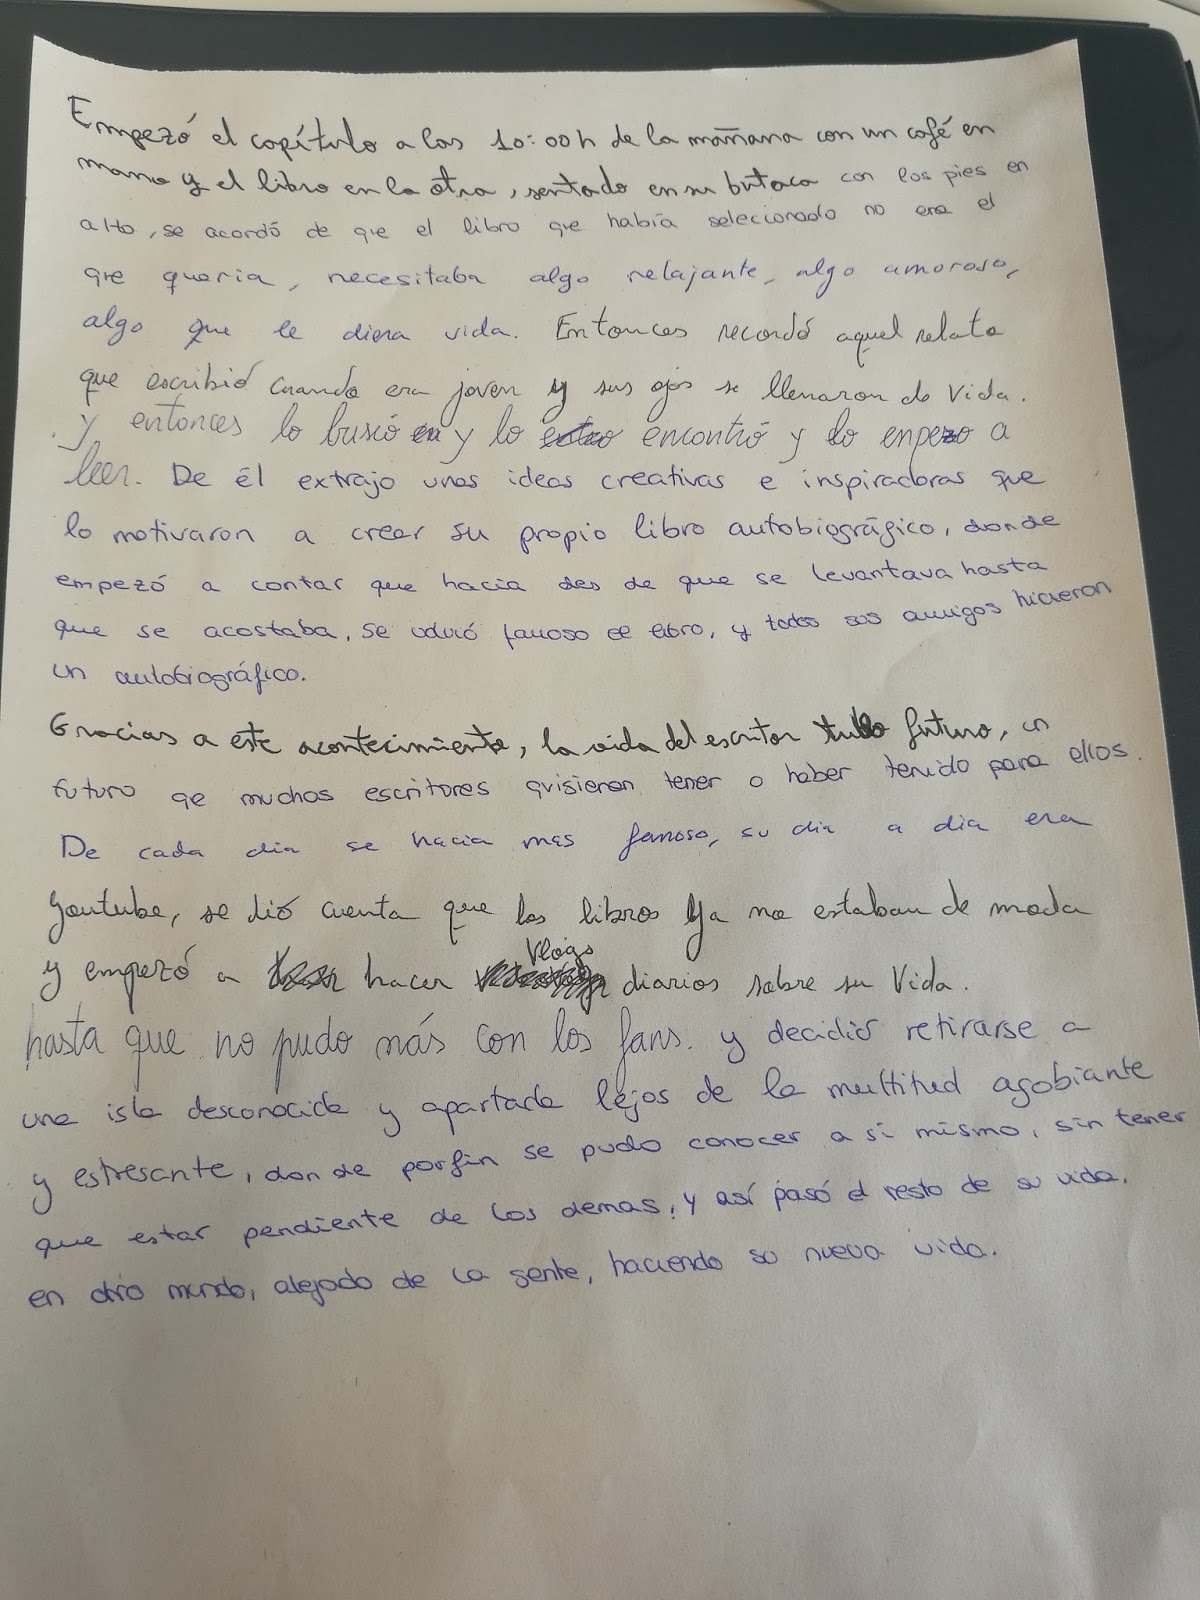 Empezó el capítulo a las 10:00h de la mañana con un café en
mano y el libro en la otra, sentado en su butaca con los pies en
alto, se acordó de que el libro que había selecionado no era el
que queria, necesitaba algo relajante, algo amoroso,
algo que le diera vida. Entonces recordó aquel relato
que escribió cuando era joven y sus ojos se llenaron de vida.
y entonces lo buscó en y lo encontró y lo empezo a
leer. De él extrajo unas ideas creativas e inspiradoras que
lo motivaron a crear su propio libro autobiográfico, donde
empezó a contar que hacia des de que se levantava hasta
que se acostaba, se volvió famoso el libro, y todos sus amigos hicieron
un autobiográfico.
Gracias a este acontecimiento, la vida del escritor tubo futuro, un
futuro qe muchos escritores quisieron tener o haber tenido para ellos.
De cada dia se hacia mas famoso, su dia a dia era
Youtube, se dió cuenta que los libros ya no estaban de moda
y empezó a hacer Vlogs diarios sobre su vida.
hasta que no pudo más con los fans. y decidió retirarse a
una isla desconocida y apartada lejos de la multitud agobiante
y estresante, don de porfin se pudo conocer a si mismo, sin tener
que estar pendiente de los demas, y así pasó el resto de su vida,
en otro mundo, alejado de la gente, haciendo su nueva vida.